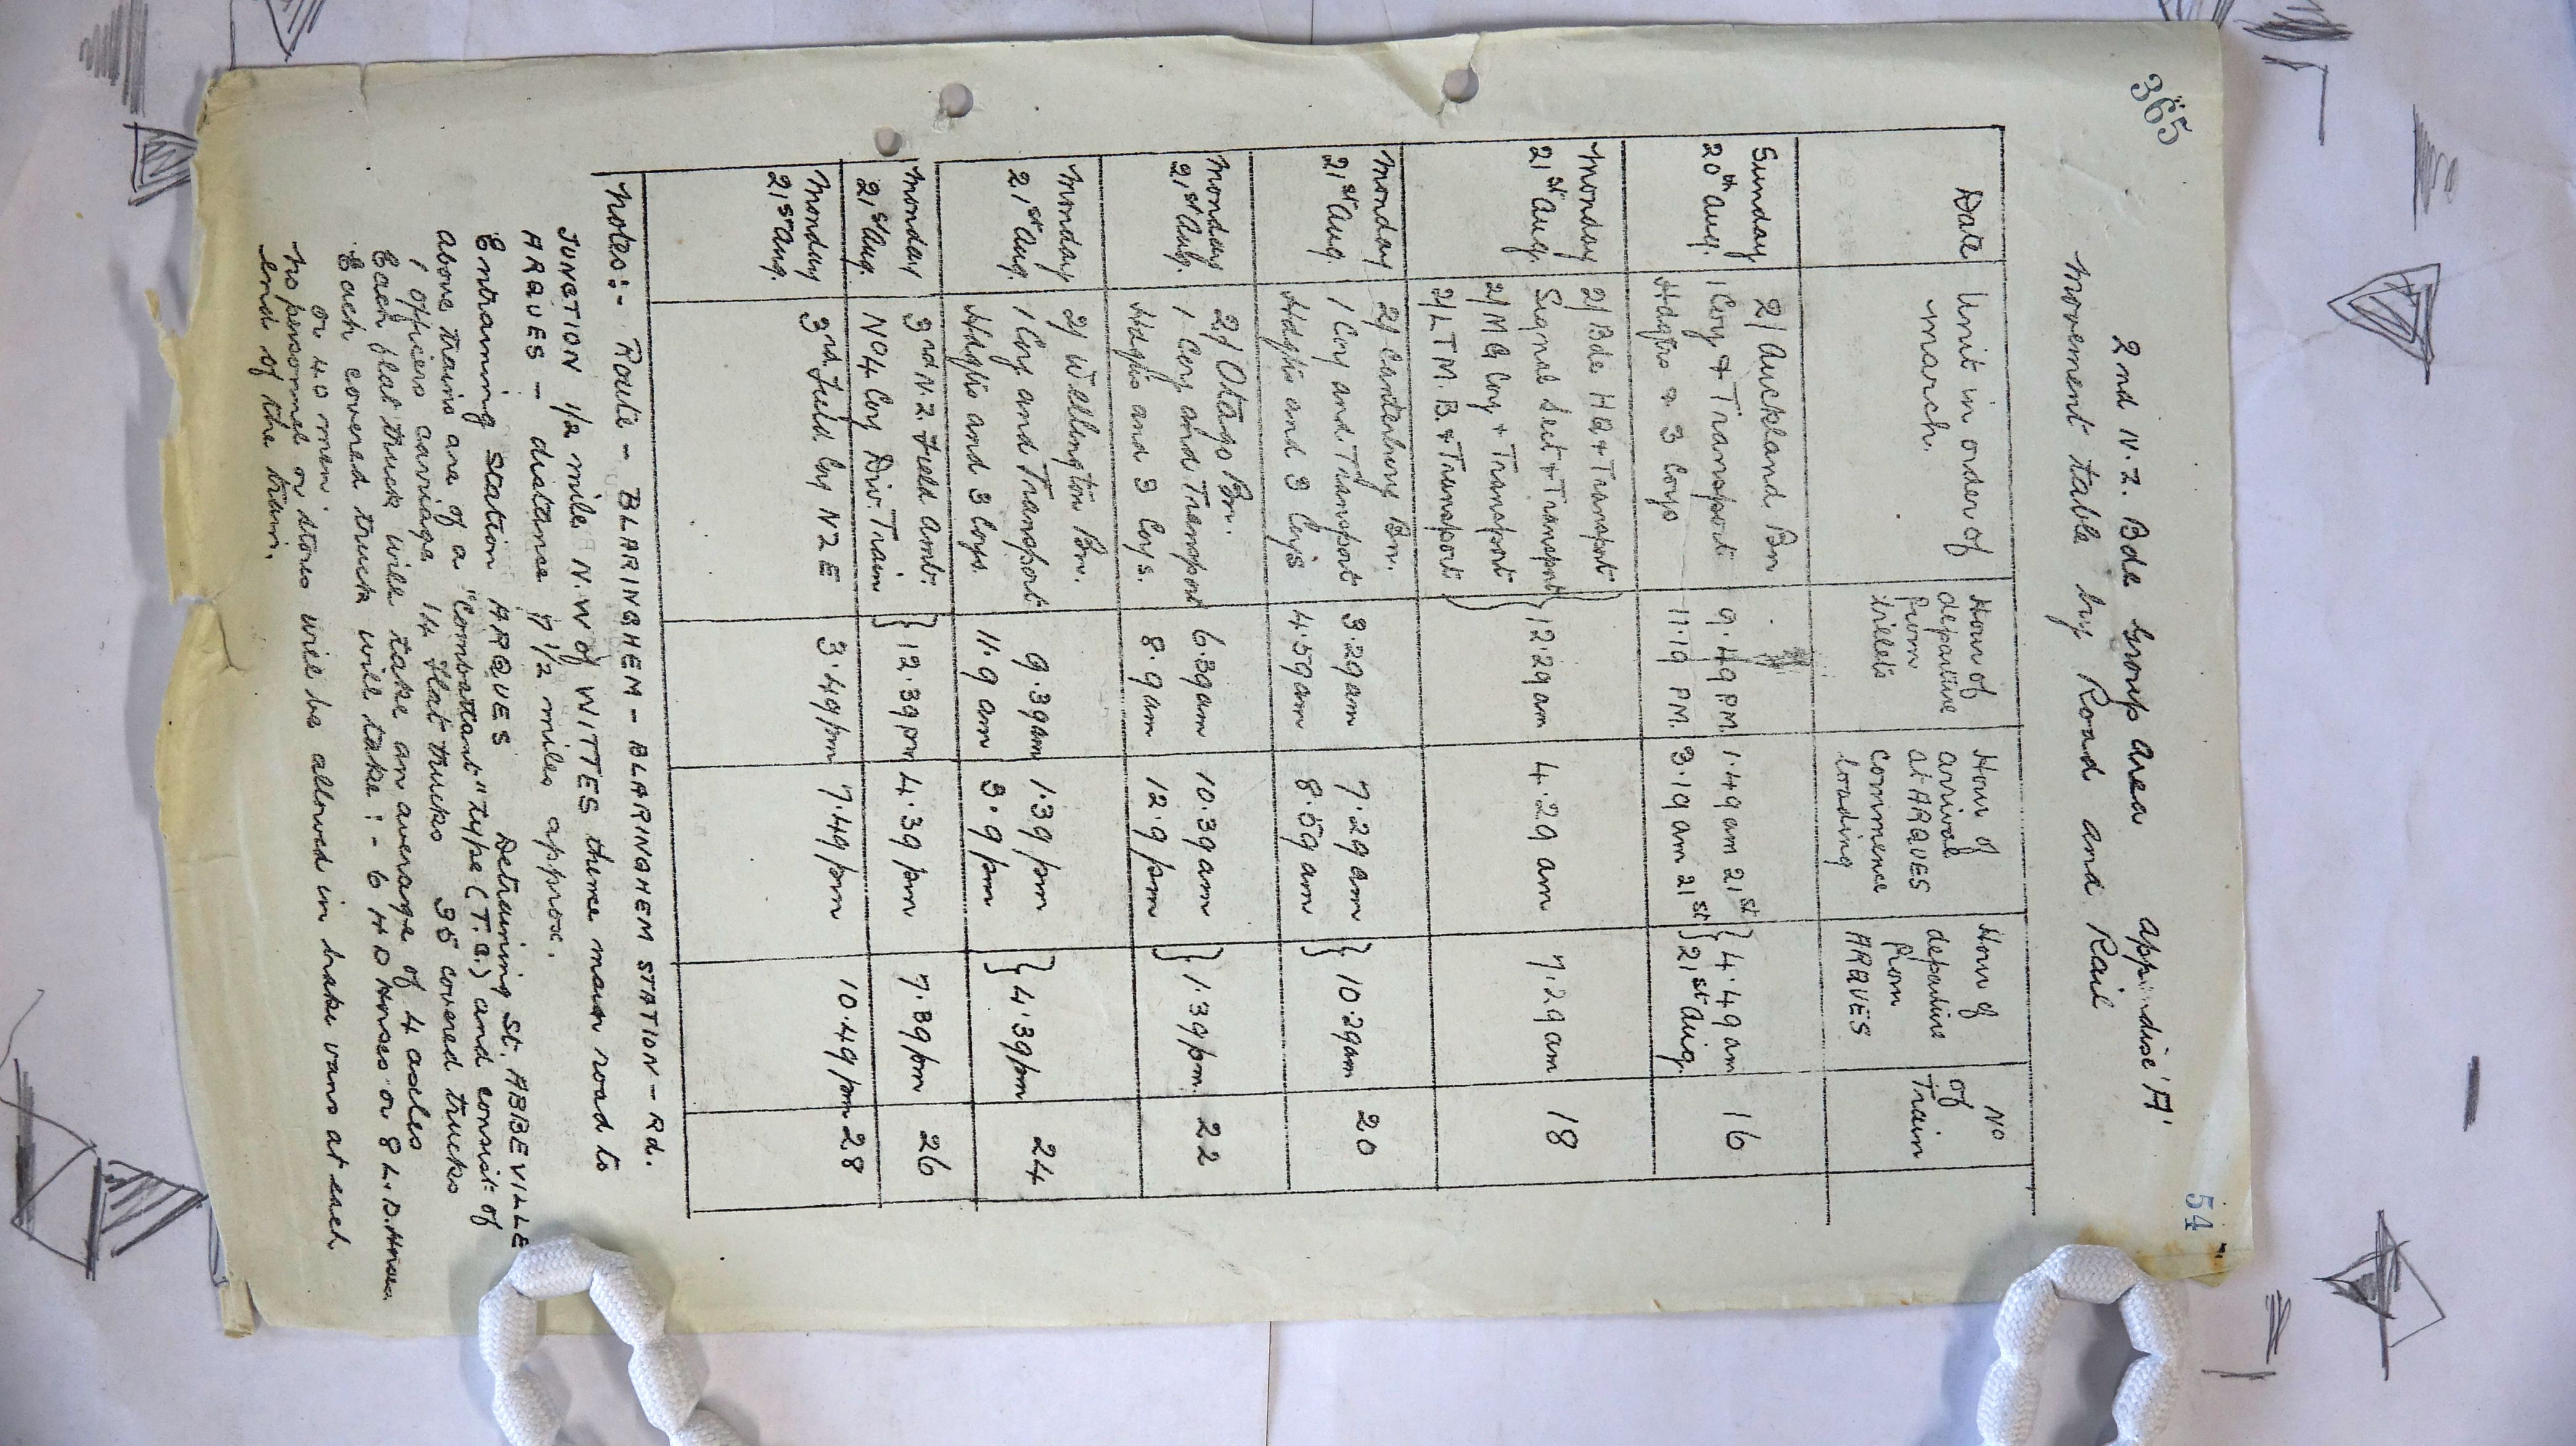 365
54
2nd N.Z. Bde Group Area Appendise 'A'
Movement table by Road and Rail
Date
Unit in order of march.
Hour of departure from billets
Hour of arrival at ARQUES commence loading
Hour of departure from ARQUES
No of Train
Sunday 2/ Auckland Bn
20th Aug. 1 Coy & Transport 9.49 P.M. 1.49 am 21st } 4.49 am 16
Hdqtrs & 3 Coys 11.19 P.M. 3.19 am 21st } 21st Aug.
Monday 2/ Bde HQ & Transport
21st Aug. Signal Sect & Transport } 12.29 am 4.29 am 7.29 am 18
2/ MG Coy & Transport
2/ L.T.M.B. & Transport
Monday 2/ Canterbury Bn.
21st Aug. 1 Coy and Transport 3.29 am 7.29 am } 10.29 am 20
Hdqtrs and 3 Coys 4.59 am 8.59 am
Monday 2/ Otago Bn.
21st Aug. 1 Coy and Transport 6.39 am 10.39 am } 1.39 pm. 22
Hdqtrs and 3 Coys. 8.9 am 12.9 pm
Monday 2/ Wellington Bn.
21st Aug. 1 Coy and Transport 9.39 am 1.39 pm } 4.39 pm 24
Hdqtrs and 3 Coys. 11.9 am 3.9 pm
Monday 3rd N.Z. Field Amb. } 12.39 pm 4.39 pm 7.39 pm 26
21st Aug. No 4 Coy Div. Train
Monday 3rd Field Coy N Z E 3.49 pm 7.49 pm 10.49 pm 28
21st Aug.
Notes:- Route - BLARINGHEM - BLARINGHEM STATION - Rd.
JUNCTION 1/2 mile N.W of WITTES thence main road to
ARQUES - distance 7 1/2 miles approx.
Entraining station ARQUES Detraining St. ABBEVILLE
Above trains are of a "Combattant" type (T.C.) and consist of
1 Officers carriage 14 flat trucks 35 covered trucks
Each flat truck will take an average of 4 axles
Each covered truck will take :- 6 H D Horses or 8 L.D. Horses
or 40 men.
No personnel or stores will be allowed in brake vans at each
end of the train.